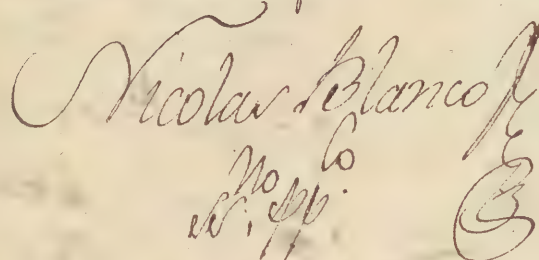 Nicolas Blanco
no co
N. pp.